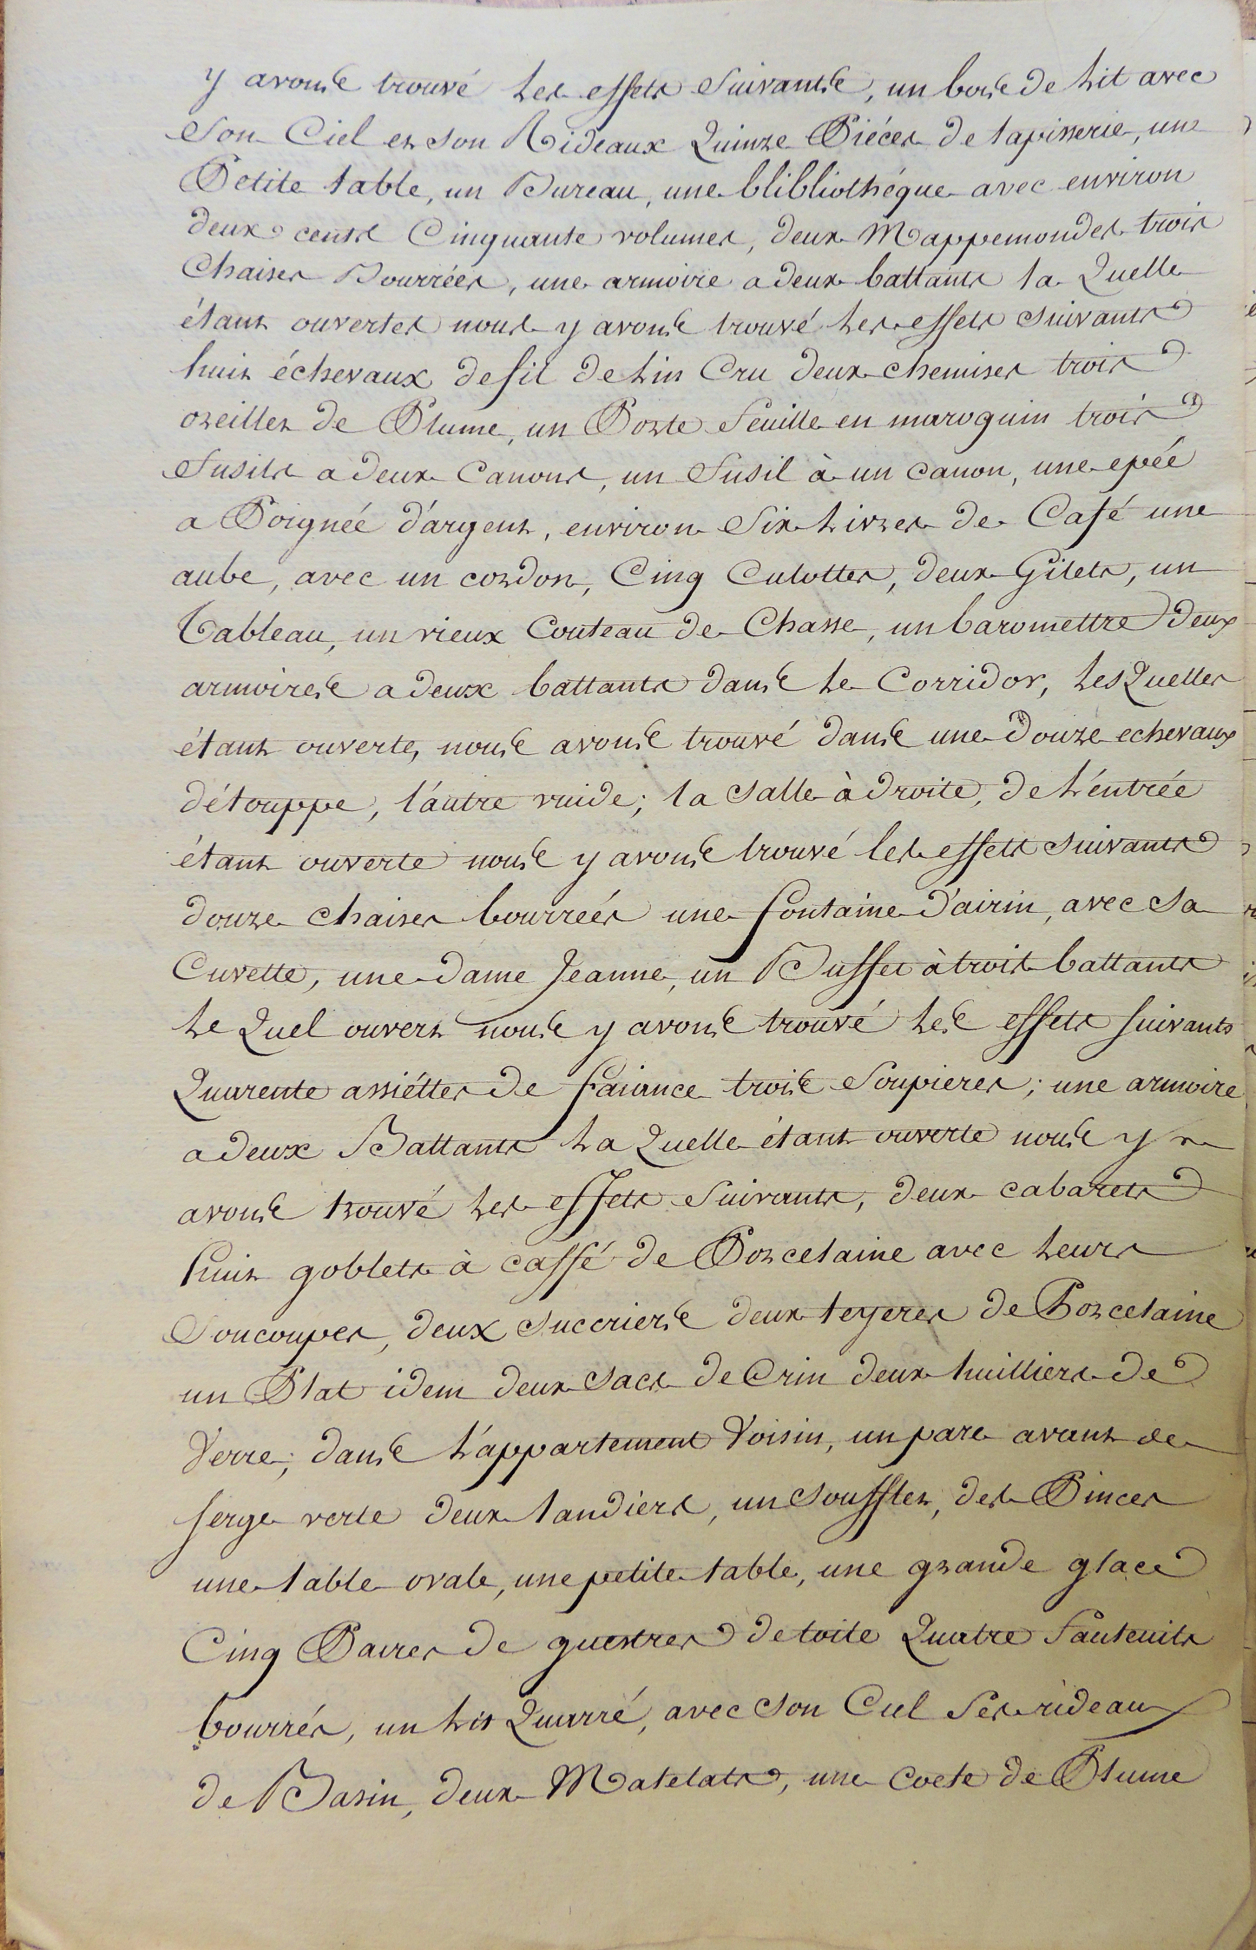 y avons trouvé les effets suivants, un bois de lit avec
son Ciel et son Rideaux Quinze Piéces de tapisserie, une
Petite table, un Bureau, une blibliothéque avec environ
deux cents Cinquante volumes, deux Mappemondes trois
Chaises Bourrées, une armoire a deux battants la Quelle
étant ouvertes nous y avons trouvé les effets suivants
huit échevaux de fil de lin Cru deux chemises trois
oreilles de Plume, un Porte feuille en maroquin trois
fusils a deux Canons, un fusil à un canon, une epée
a Poignée d'argent, environ Six Livres de Café une
aube, avec un cordon, Cinq Culottes, deux Gilets, un
Tableau, un vieux Couteau de Chasse, un baromettre deux
armoires a deux battants dans le Corridor, lesQuelles
étant ouverte, nous avons trouvé dans une Douze echevaux
détouppe, l'autre vuide; la salle à droite, de l'éntrée
étant ouverte nous y avons trouvé les effets suivants
douze chaises bourreés une fontaine d'airin, avec sa
Cuvette, une dame Jeanne, un Buffet à trois battants
le Quel ouvert nous y avons trouvé les effets suivants
Quarente assiéttes de faiance trois Soupieres; une armoire
a deux Battants la Quelle étant ouverte nous y
avons trouvé les effets suivants, deux cabarets
huit goblets à caffé de Porcelaine avec leurs
Soucoupes, deux succriers deux teyeres de Porcelaine
un Plat idem deux sacs de Crin deux huilliers de
Verre; dans l'appartement Voisin, un pare avant de
serge verte deux landiers, un soufflet, des Pinces
une table ovale, une petite table, une grande glace
Cinq Paires de guestres de toile Quatre fauteuils
bourrés, un lit Quarré, avec son Ciel Ses rideaux
de Basin, deux Matelats, une Coete de Plume